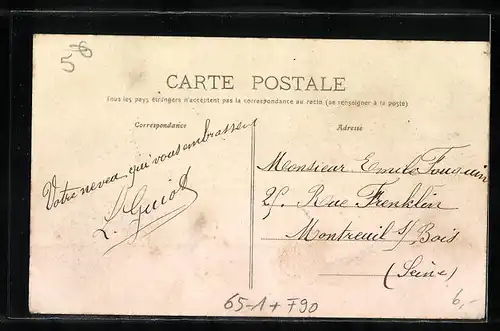 58
CARTE POSTALE
Tous les pays étrangers n'acceptent pas la correspondance au recto (se renseigner à la poste)
Correspondance
Votre neveu qui vous embrassent
L. Guiot
Adresse
Monsieur Emile Fouquin
25. Rue Frenklin
Montreuil s/ Bois
(Seine)
65-1+790
6,-